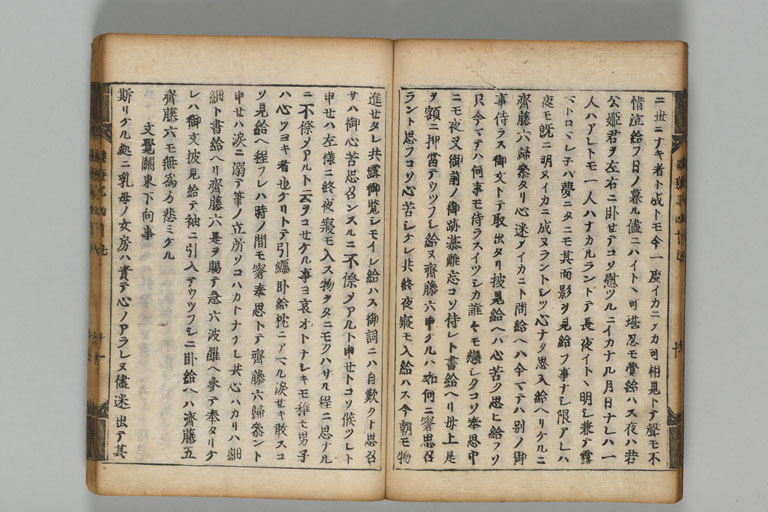 ニ世ニナキ者ト成トモ今一度イカニシカ可相見トテ聲モ不
惜泣給フ日ノ暮ル儘ニハイトヽ可堪忍モ覺給ハス夜ハ若
公姫君ヲ左右ニ臥セテコソ慰ツルニイカナル月日ナレハ一
人ハアレトモ一人ハナカルラントテ長夜イトヽ明シ兼テ露
トロマレ子ハ夢ニタニモ其面影ヲ見給フ事ナシ限アレハ
夜モ既ニ明ヌイカニ成ヌラントシツ心ナク思入給ヘリケルニ
齊藤六歸參タリ心迷テイカニト問給ヘハ今マテハ別ノ御
事侍ラス御文トテ取出タリ披見給ヘハ心苦ク思ヒ給フソ
只今マテハ何事モ侍ラスイツシカ誰モ戀シクコソ奉思中
ニモ夜叉御前ノ御跡慕離忘コソ侍レト書給ヘリ母上是
ヲ額ニ押當テウツフシ給ヌ齊藤六申ケルハ如何ニ窘思召
ラント思フコソ心苦シケレ共終夜寢モ入給ハス今朝モ物
進セタレ共露御覽モイレ給ハス御詞ニハ自歎クト思召
サハ御心苦思召ンスルニ不倏メアルト申セトコソ候ツレト
申セハ左樣ニ終夜寢モ入ス物ヲタニモクハサル程ニ思ナル
ニ不倏メアルト云ヲコセケル事ヨ哀オトナシキモ稚モ男子
ハ心ツヨキ者也ケリトテ引纏臥給枕ニアマル涙セキ敢スコ
ソ見給ヘ程フレハ時ノ間モ窘奉思トテ齊藤六歸參ント
申セハ涙ニ溺テ筆ノ立所ソコハカトナケレ共心ハカリハ細
細ト書給ヘリ齊藤六是ヲ賜テ急六波羅ヘ參テ奉タリケ
レハ御文披見給テ袖ニ引入テウツフシニ臥給ヘハ齊藤五
齊藤六モ無爲方悲ミケル
文覺關東下向事
斯リケル處ニ乳母ノ女房ハ責テ心ノアラレヌ儘迷出テ其